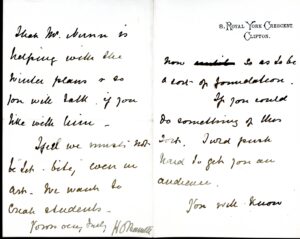 8, ROYAL YORK CRESCENT
CLIFTON.
now so as to be
a sort of foundation.
If you could
do something of this
sort. I wd push
hard to get you an
audience.
You will know
that Mr. Nunn is
helping with the
winter plans & so
you will talk if you
like with him -
I feel we must not
be even in
art. We want to
students -
Yours very truly